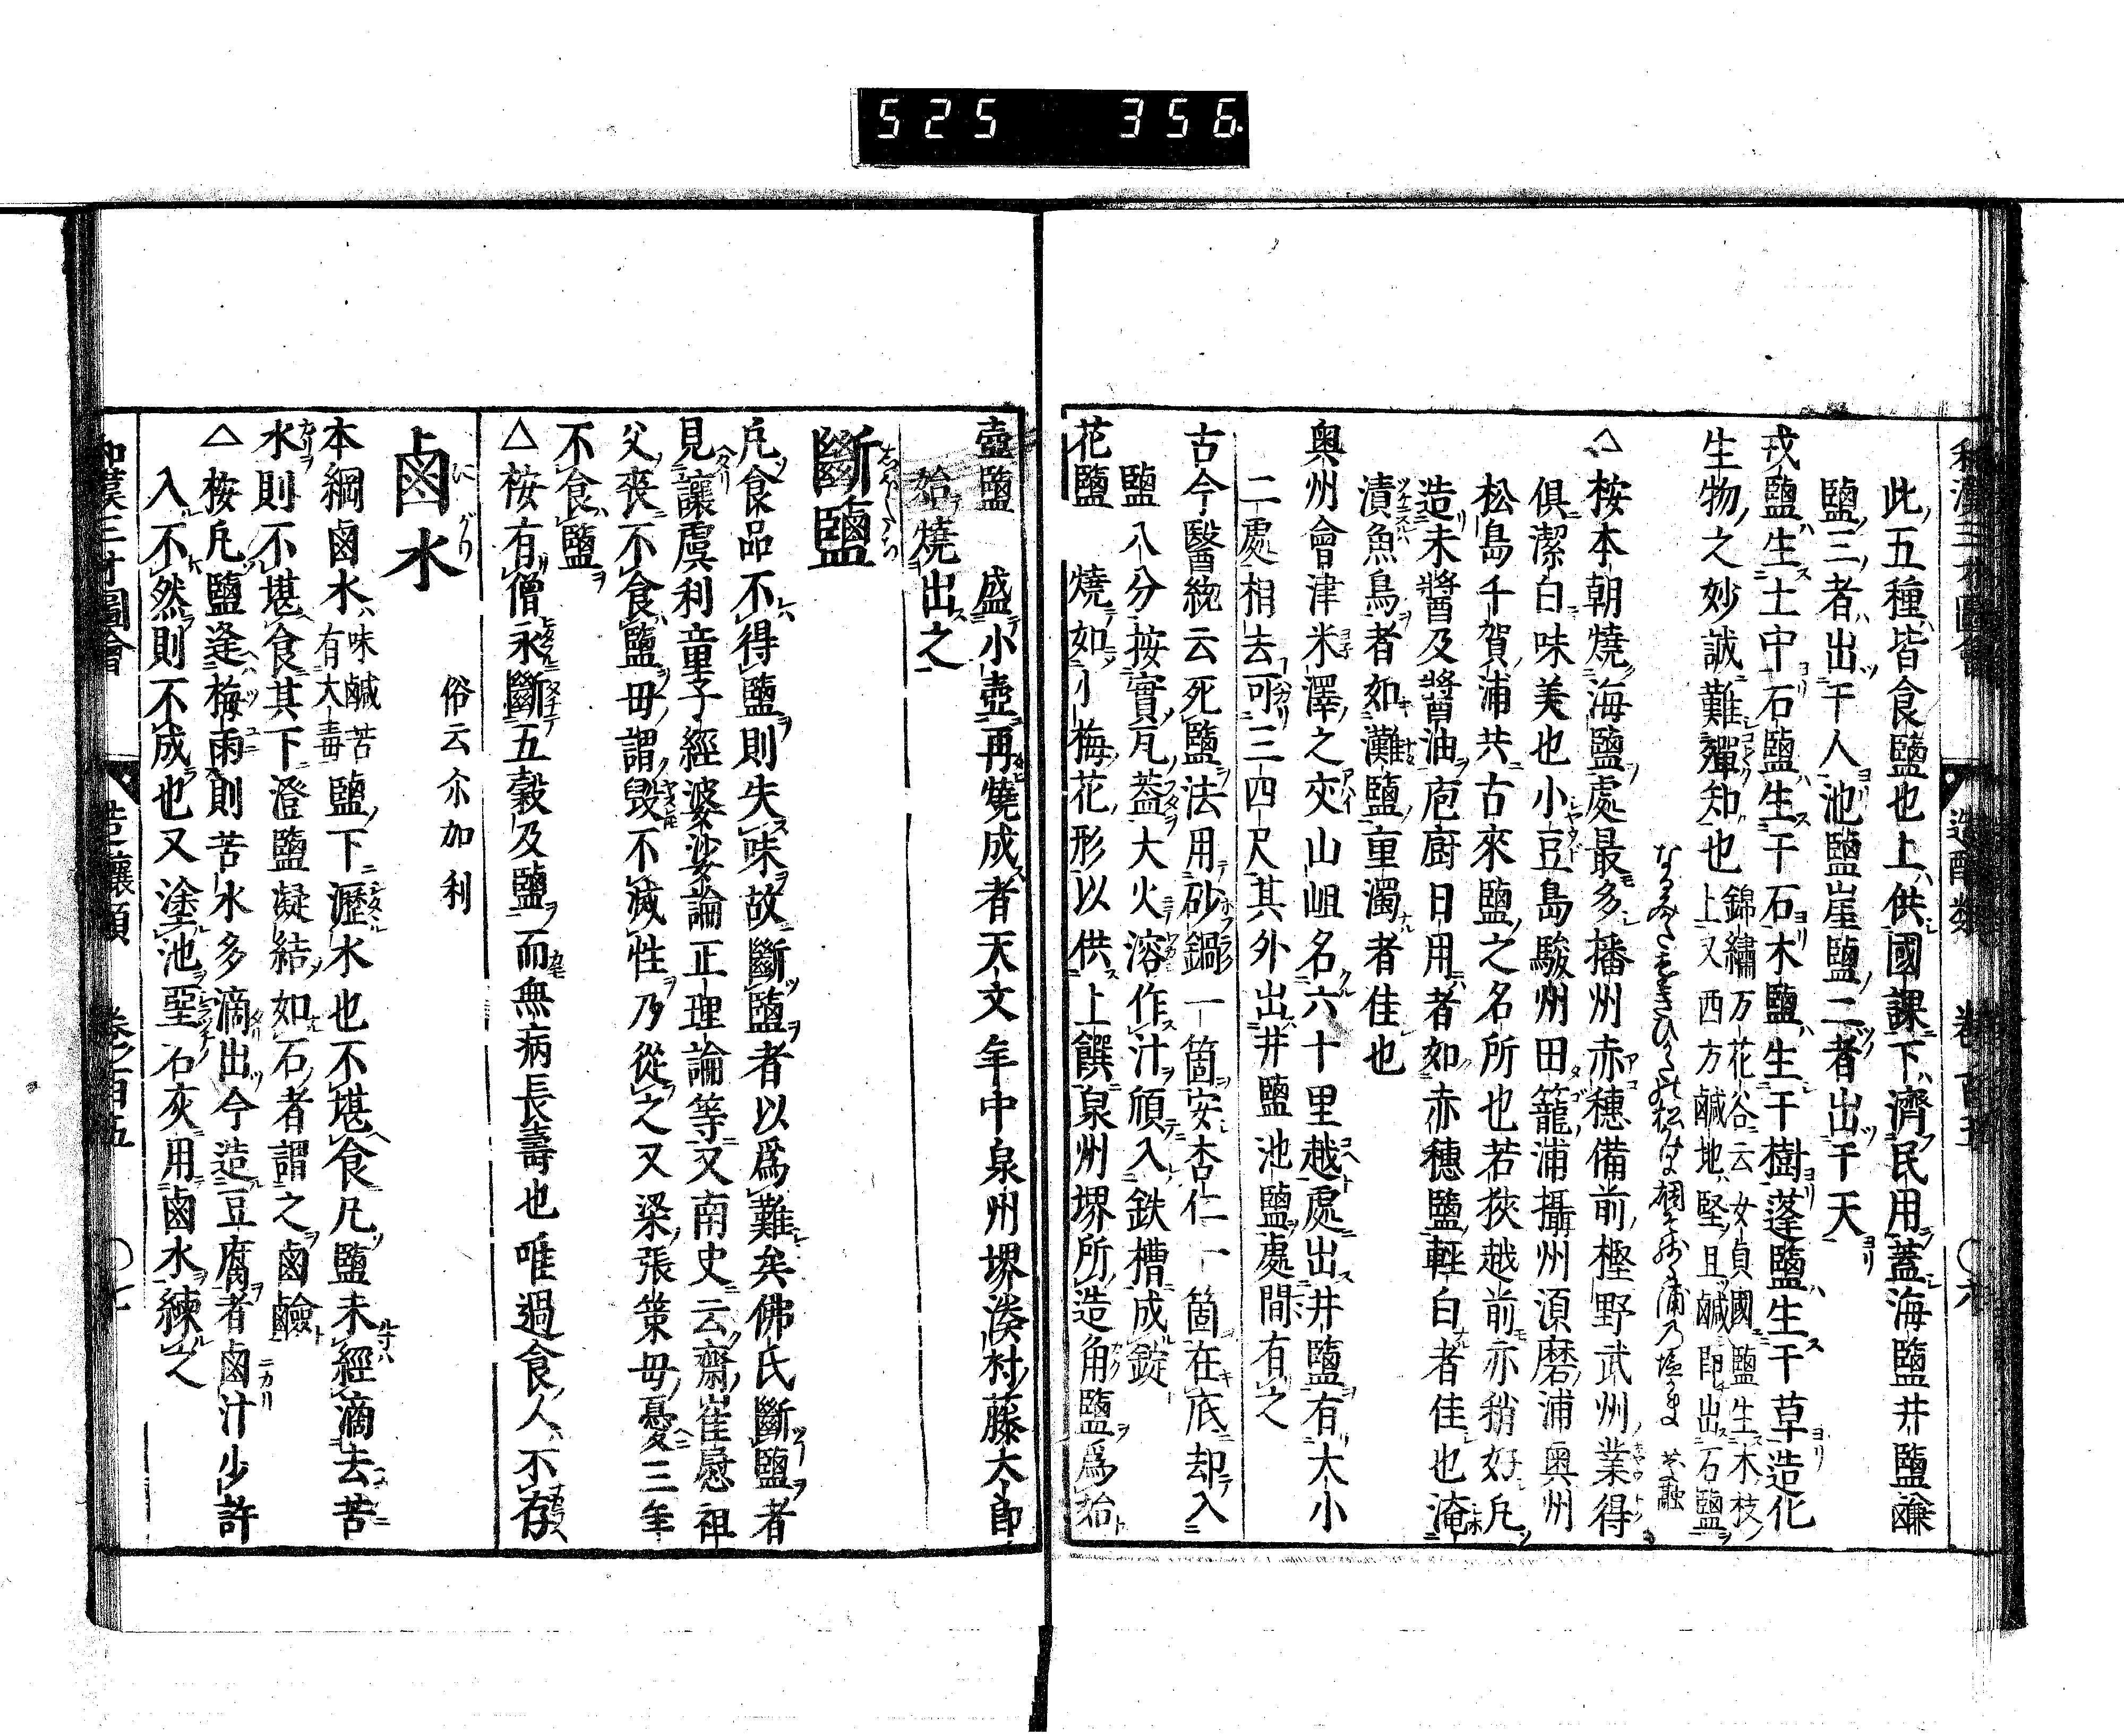 525 356
和漢三才圖會 造釀類 卷百五 〇六
此五種皆食鹽也上供國課下濟民用蓋海鹽井鹽鹻
鹽三者出于人池鹽崖鹽二者出于天
戎鹽生土中石鹽生于石木鹽生于樹蓬鹽生于草造化
生物之妙誠難殫知也
錦繡万花谷云女貞國鹽生木枝
上又西方鹹地堅且鹹卽出石鹽
△按本朝燒海鹽處最多播州赤穗備前樫野武州業得
俱潔白味美也小豆島駿州田籠浦攝州須磨浦奥州
松島千賀浦共古來鹽之名所也若狹越前亦稍好凡
造未醬及醬油庖廚日用者如赤穗鹽輕白者佳也淹
漬魚鳥者如灘鹽重濁者佳也
奥州會津米澤之交山岨名六十里越處出井鹽有大小
二處相去可三四尺其外出井鹽池鹽處間有之
古今醫統云死鹽法用砂鍋一箇安杏仁一箇在底却入
鹽八分按實瓦蓋大火溶作汁傾入鉄槽成錠
花鹽 燒如小梅花形以供上饌泉州堺所造角鹽爲始
壺鹽 盛小壺再燒成者天文年中泉州堺湊村藤太郎
始燒出之
斷鹽
凡食品不得鹽則失味故斷鹽者以爲難矣佛氏斷鹽者
見讓虞利童子經婆娑論正理論等又南史云齋崔慰祖
父喪不食鹽母謂毀不滅性乃從之又梁張策母憂三年
不食鹽
△按有僧永斷五穀及鹽而無病長壽也唯過食人不存
鹵水 にがり
俗云尒加利
本綱鹵水味鹹苦有大毒鹽下瀝水也不堪食凡鹽未經滴去苦
水則不堪食其下澄鹽凝結如石者謂之鹵鹼
△按凡鹽逢梅雨則苦水多滴出今造豆腐者鹵汁少許
入不然則不成也又塗池堊石灰用鹵水練之
和漢三才圖會 造釀類 卷之百五 〇七